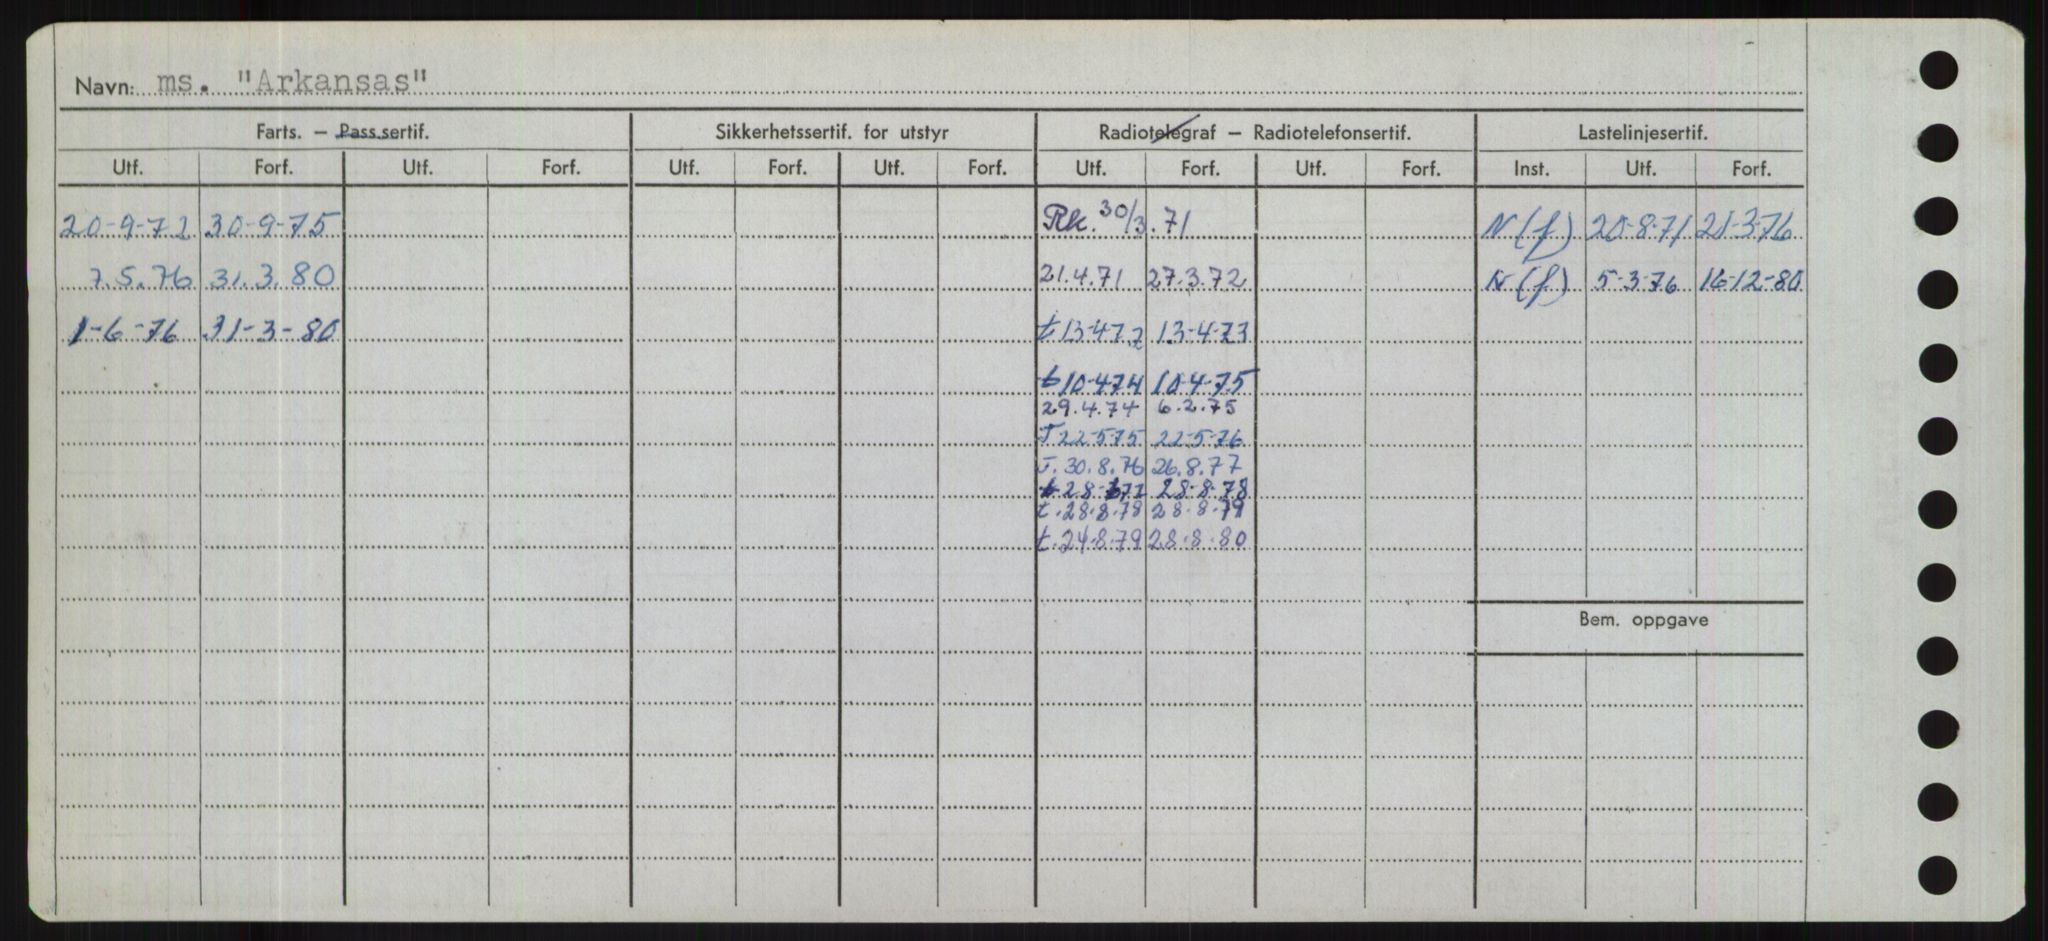 Navn: ms. "Arkansas"
Farts. — Pass.sertif. Sikkerhetssertif. for utstyr Radiotelegraf — Radiotelefonsertif. Lastelinjesertif.
Utf. Forf. Utf. Forf. Utf. Forf. Utf. Forf. Utf. Forf. Utf. Forf. Inst. Utf. Forf.
20-9-72 30-9-75 Rk. 30/3.71 N(f) 20-8-71 21-3-76
7.5.76 31.3.80 21.4.71 27.3.72 N(f) 5-3-76 16-12-80
1-6-76 31-3-80 t 13-4-72 13-4-73
t 10-4-74 10-4-75
29.4.74 6.2.75
T 22-5-75 22-5-76
T. 30.8.76 26.8.77
t 28-8-77 28-8-78
t. 28.8.78 28.8.79
t. 24.8.79 28.8.80
Bem. oppgave